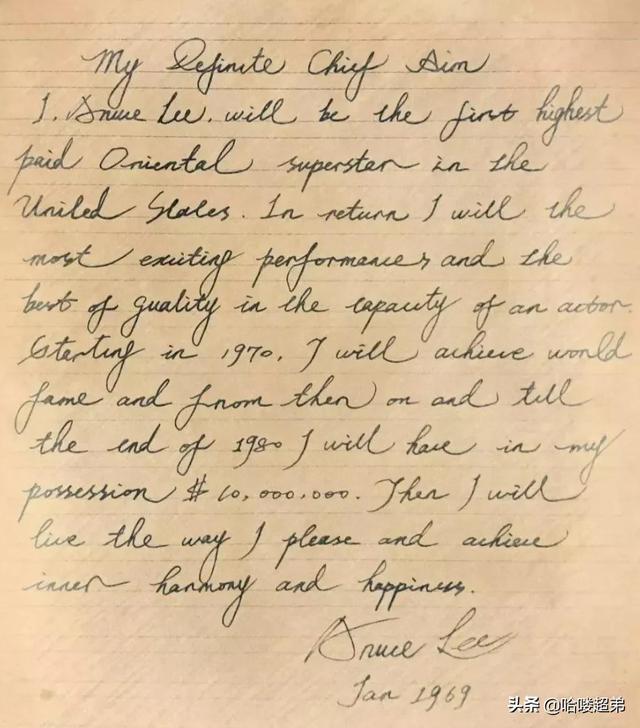 My Definite Chief Aim
I, Bruce Lee, will be the first highest
paid Oriental superstar in the
United States. In return I will the
most exciting performances and the
best of quality in the capacity of an actor.
Starting in 1970, I will achieve world
fame and from then on and till
the end of 1980 I will have in my
possession $10,000,000. Then I will
live the way I please and achieve
inner harmony and happiness.
Bruce Lee
Jan 1969
头条 @哈喽超弟